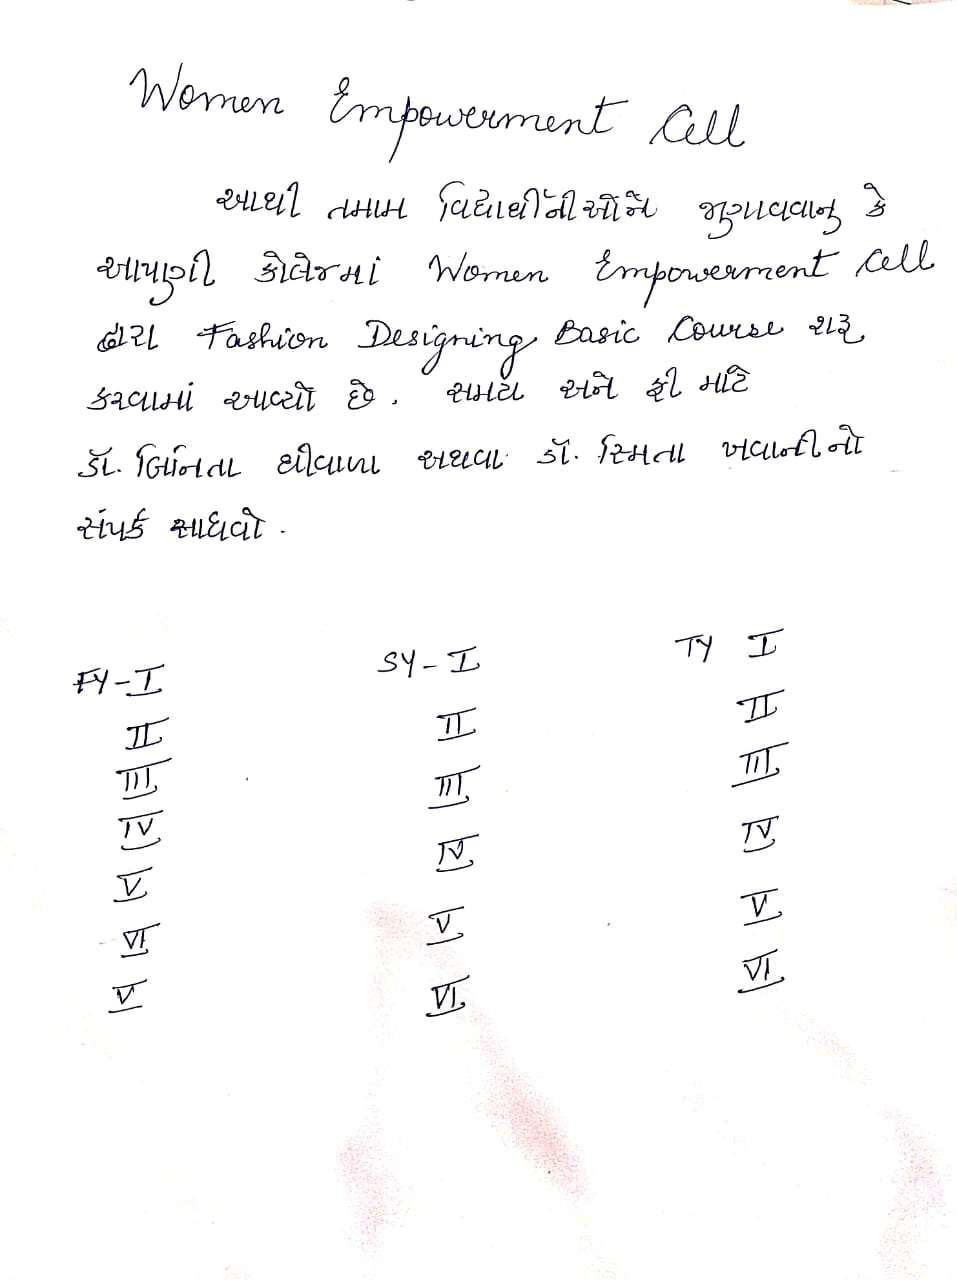 Women Empowerment Cell
આથી તમામ વિદ્યાર્થીનીઓને જણાવવાનુ કે
આપણી કોલેજમાં Women Empowerment Cell
દ્વારા Fashion Designing Basic Course શરૂ
કરવામાં આવ્યો છે. સમય અને ફી માટે
ડૉ. ધીવાળા અથવા ડૉ. સ્મિતા ખવાનીનો
સંપર્ક સાધવો.
FY-I SY-I TY I
II II II
III III III
IV IV IV
V V V
VI VI VI
V